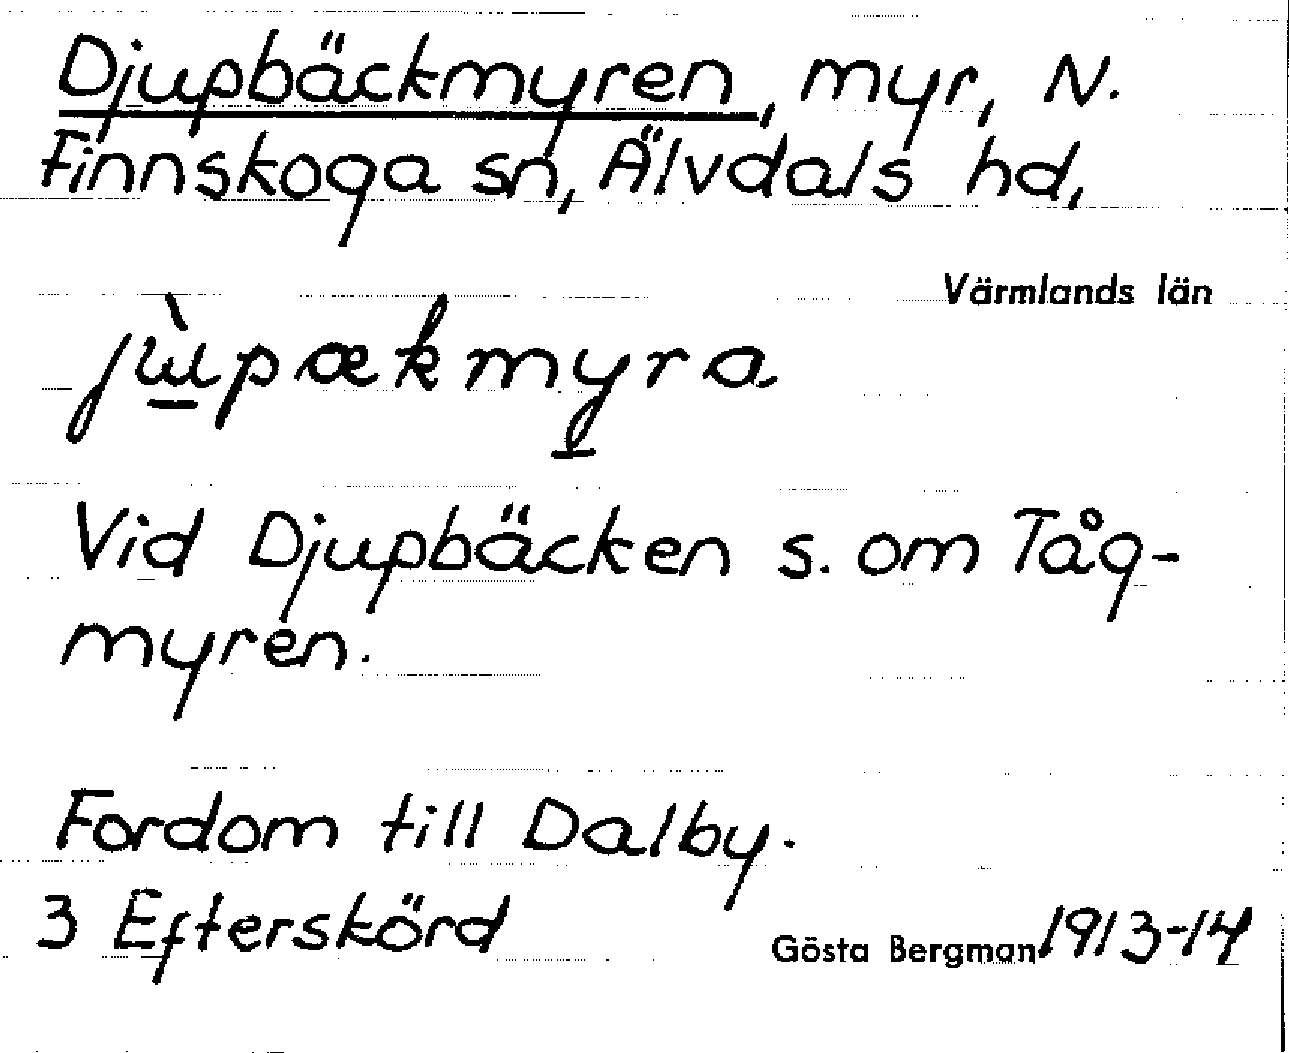 Djupbäckmyren, myr, N.
Finnskoga sn, Älvdals hd,
Värmlands län
jɯ̀pækmyra
Vid Djupbäcken s. om Tåg-
myren.
Fordom till Dalby.
3 Efterskörd Gösta Bergman 1913-14